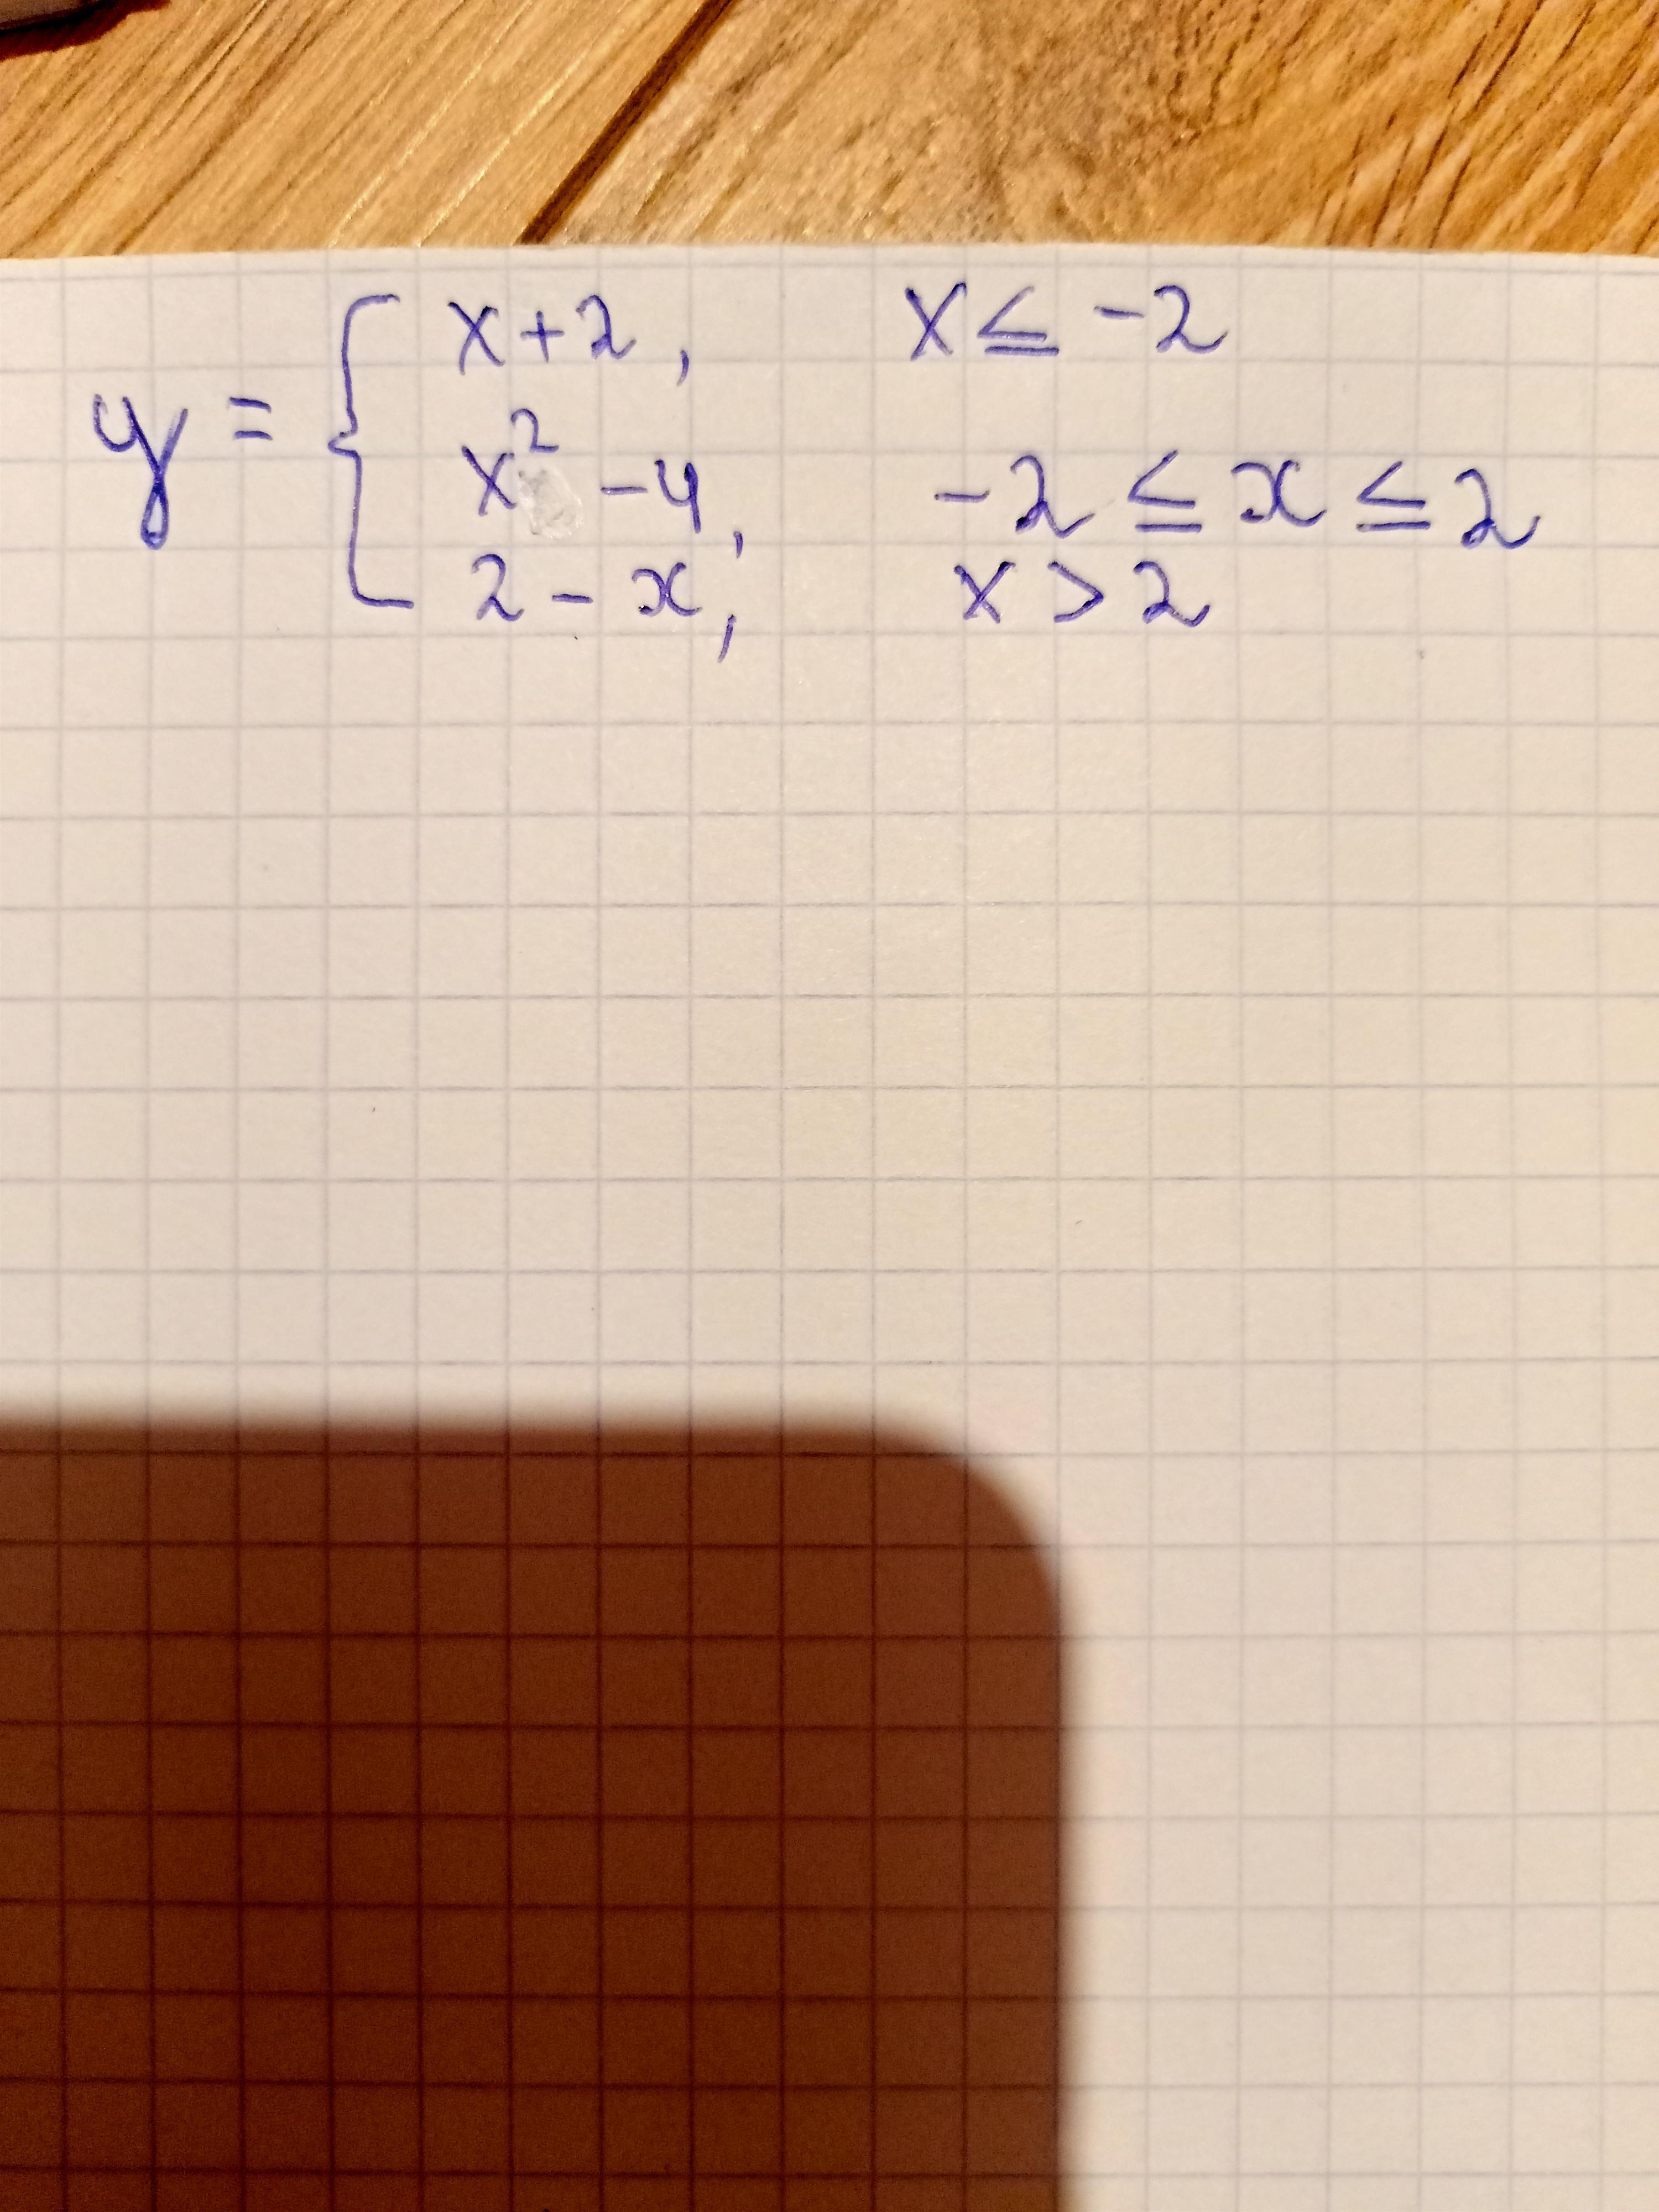 y = { x+2, x ≤ -2
x² -4, -2 ≤ x ≤ 2
2 - x, x > 2